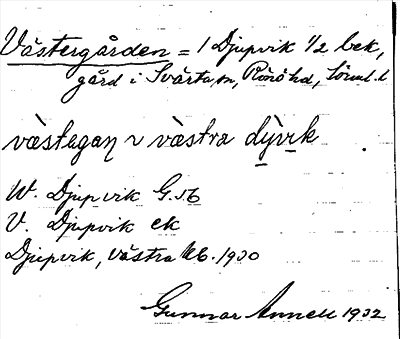 Västergården = 1 Djupvik 1/2 bek,
gård i Svärta sn, Rönö hd, Sörml. l
västagaɳ ~ västra dỳvik
W. Djupvik G. 56
V. Djupvik ek
Djupvik, västra Kb. 1930
Gunnar Annell 1932